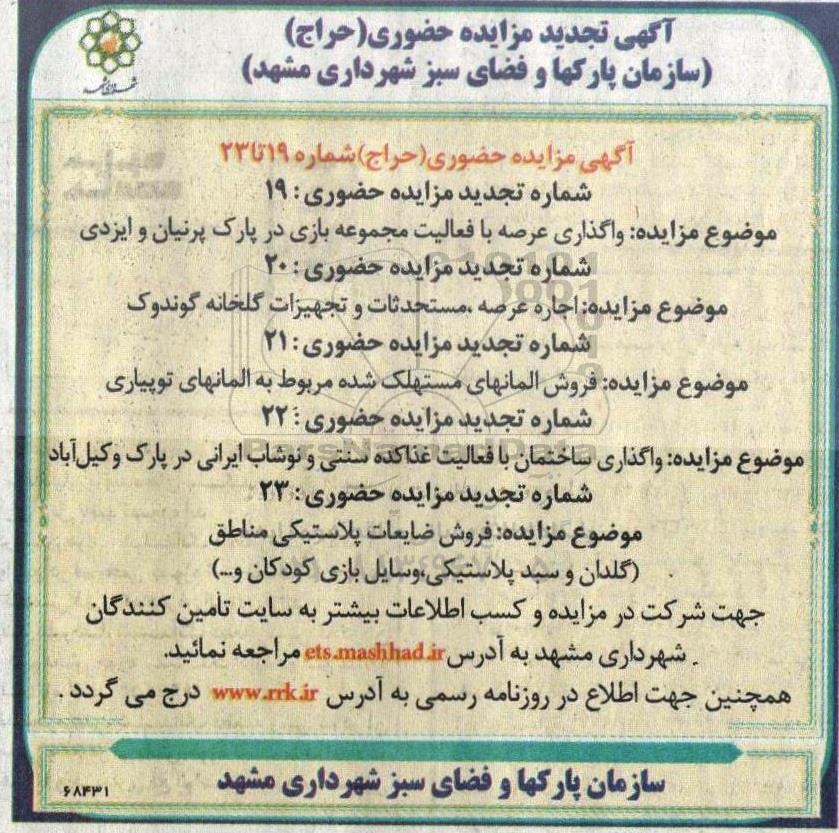 آگهی تجدید مزایده حضوری(حراج)
(سازمان پارکها و فضای سبز شهرداری مشهد)
آگهی مزایده حضوری(حراج)شماره ۱۹تا۲۳
شماره تجدید مزایده حضوری: ۱۹
موضوع مزایده: واگذاری عرصه با فعالیت مجموعه بازی در پارک پرنیان و ایزدی
شماره تجدید مزایده حضوری: ۲۰
موضوع مزایده: اجاره عرصه ،مستحدثات و تجهیزات گلخانه گوندوک
شماره تجدید مزایده حضوری: ۲۱
موضوع مزایده: فروش المانهای مستهلک شده مربوط به المانهای توپیاری
شماره تجدید مزایده حضوری: ۲۲
موضوع مزایده: واگذاری ساختمان با فعالیت غذاکده سنتی و نوشاب ایرانی در پارک وکیل‌آباد
شماره تجدید مزایده حضوری: ۲۳
موضوع مزایده: فروش ضایعات پلاستیکی مناطق
(گلدان و سبد پلاستیکی،وسایل بازی کودکان و...)
جهت شرکت در مزایده و کسب اطلاعات بیشتر به سایت تأمین کنندگان
شهرداری مشهد به آدرس ets.mashhad.ir مراجعه نمائید.
همچنین جهت اطلاع در روزنامه رسمی به آدرس www.rrk.ir درج می گردد.
سازمان پارکها و فضای سبز شهرداری مشهد
۶۸۴۳۱